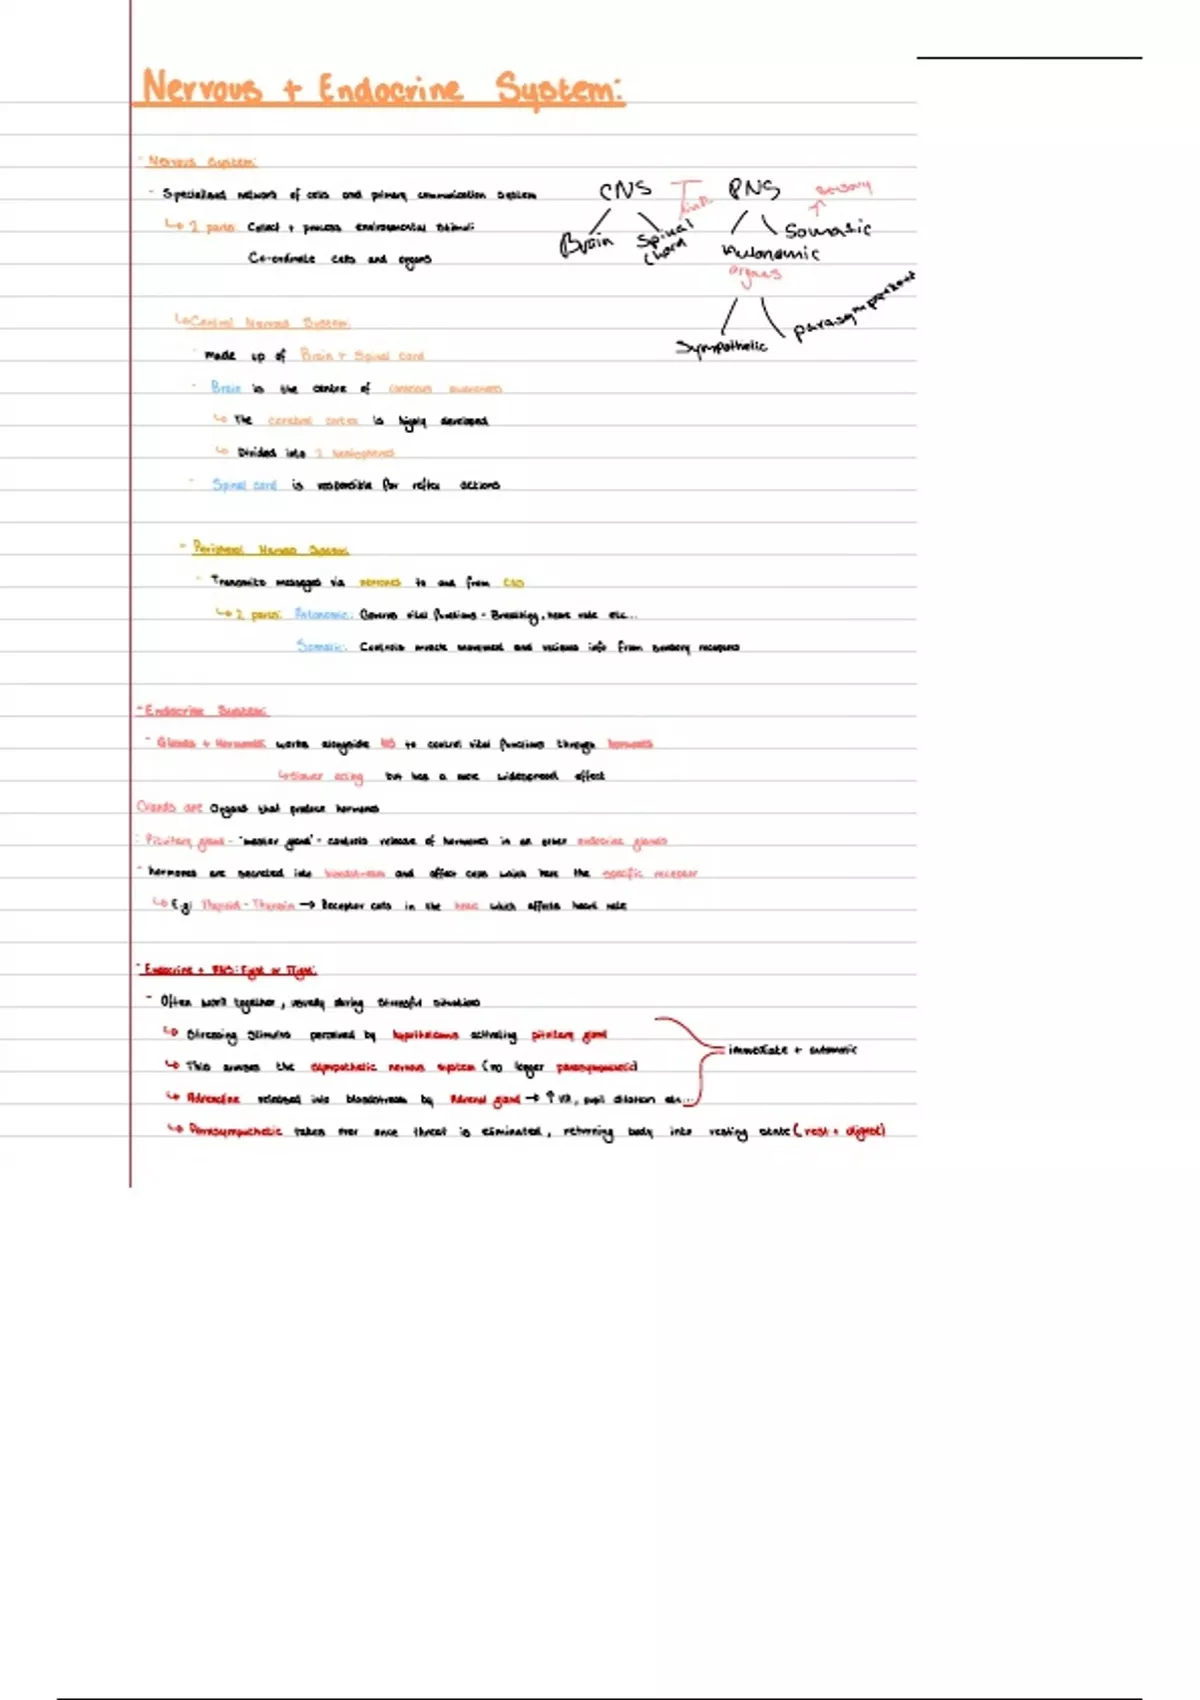 Nervous + Endocrine System:
- Nervous System:
- Specialised network of cells and primary communication system
↳ 2 parts: Collect + process environmental stimuli
Co-ordinate cells and organs
CNS
PNS
sensory
Brain
Spinal
Chord
Somatic
Autonomic
organs
Sympathetic
parasympathetic
↳ Central Nervous System:
- made up of Brain + Spinal cord
- Brain is the centre of conscious awareness
↳ The cerebral cortex is highly developed
↳ Divided into 2 hemispheres
- Spinal cord is responsible for reflex actions
- Peripheral Nervous System:
- Transmits messages via neurones to and from CNS
↳ 2 parts: Autonomic: Governs vital functions - Breathing, heart rate etc...
Somatic: Controls muscle movement and recieves info from sensory receptors
- Endocrine System:
- Glands + Hormones: works alongside NS to control vital functions through hormones
↳ Slower acting but has a more widespread effect
Glands are Organs that produce hormones
: Pituitary gland - "master gland" - controls release of hormones in all other endocrine glands
- hormones are secreted into bloodstream and affect cells which have the specific receptor
↳ E.g: Thyroid - → Receptor cells in the heart which affects heart rate
- Endocrine + ANS: Fight or Flight:
- Often work together, usually during stressful situations
↳ Stressing Stimulus perceived by hypothalamus activating pituitary gland
↳ This arouses the sympathetic nervous system (no longer parasympathetic)
immediate + automatic
↳ Adrenaline released into bloodstream by Adrenal gland → ↑ HR, pupil dilation etc...
↳ Parasympathetic takes over once threat is eliminated, returning body into resting state (rest + digest)